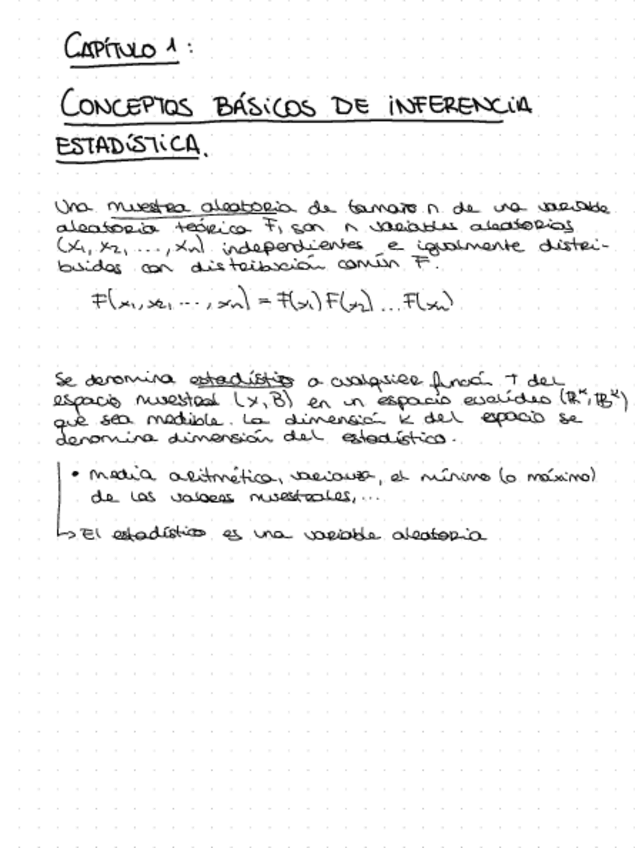 CAPÍTULO 1:
CONCEPTOS BÁSICOS DE INFERENCIA
ESTADÍSTICA.
Una muestra aleatoria de tamaño n de una variable
aleatoria teórica F, son n variables aleatorias
(x₁, x₂, ..., xₙ) independientes e igualmente distri-
buidas con distribución común F.
F(x₁, x₂, ..., xₙ) = F(x₁) F(x₂) ... F(xₙ)
Se denomina estadístico a cualquier función T del
espacio muestral (X, B) en un espacio euclídeo (ℝᴷ, Bᴷ)
que sea medible. La dimensión K del espacio se
denomina dimensión del estadístico.
• media aritmética, varianza, el mínimo (o máximo)
de los valores muestrales, ...
↳ El estadístico es una variable aleatoria